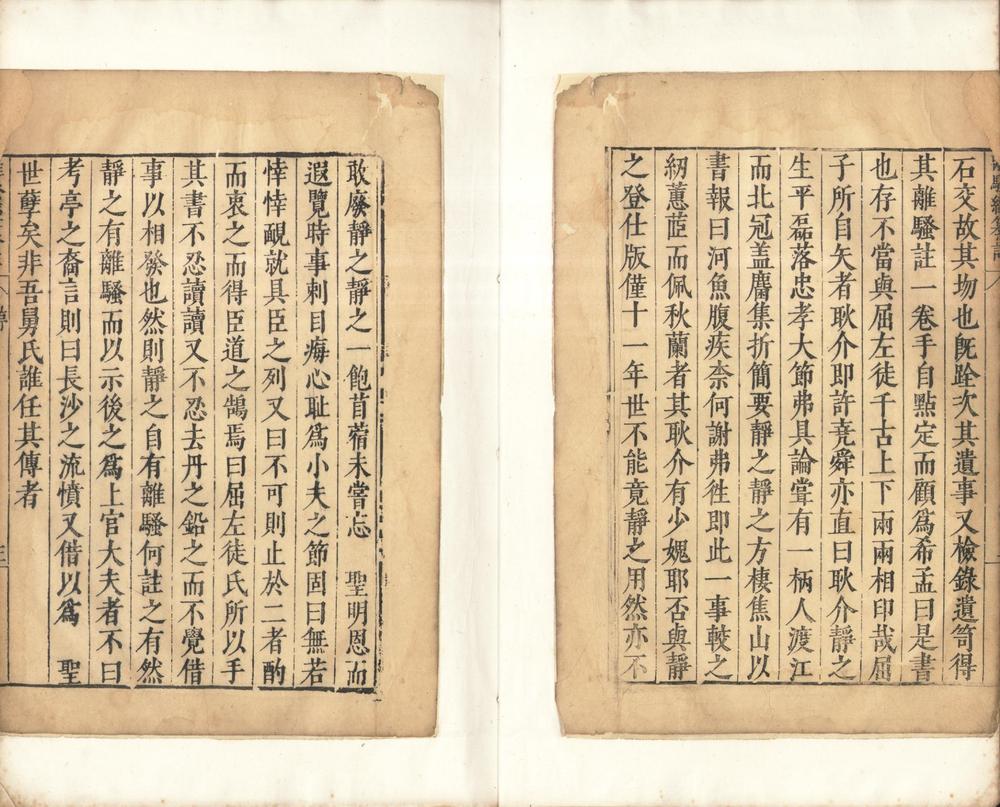 石交故其歾也旣跧次其遺事又檢錄遺笥得
其離騷註一卷手自點定而顧爲希孟曰是書
也存不當與屈左徒千古上下兩兩相印哉屈
子所自矢者耿介即許堯舜亦直曰耿介靜之
生平磊落忠孝大節弗具論嘗有一柄人渡江
而北冠盖麏集折簡要靜之靜之方棲焦山以
書報曰河魚腹疾柰何謝弗徃即此一事較之
紉蕙茝而佩秋蘭者其耿介有少媿耶否與靜
之登仕版僅十一年世不能竟靜之用然亦不
敢廢靜之靜之一飽苜蓿未嘗忘 聖明恩而
遐覽時事刺目痗心耻爲小夫之節固曰無若
悻悻覥就具臣之列又曰不可則止於二者酌
而衷之而得臣道之鵠焉曰屈左徒氏所以手
其書不忍讀讀又不忍去丹之鉛之而不覺借
事以相發也然則靜之自有離騷何註之有然
靜之有離騷而以示後之爲上官大夫者不曰
考亭之裔言則曰長沙之流憤又借以爲 聖
世孽矣非吾舅氏誰任其傳者